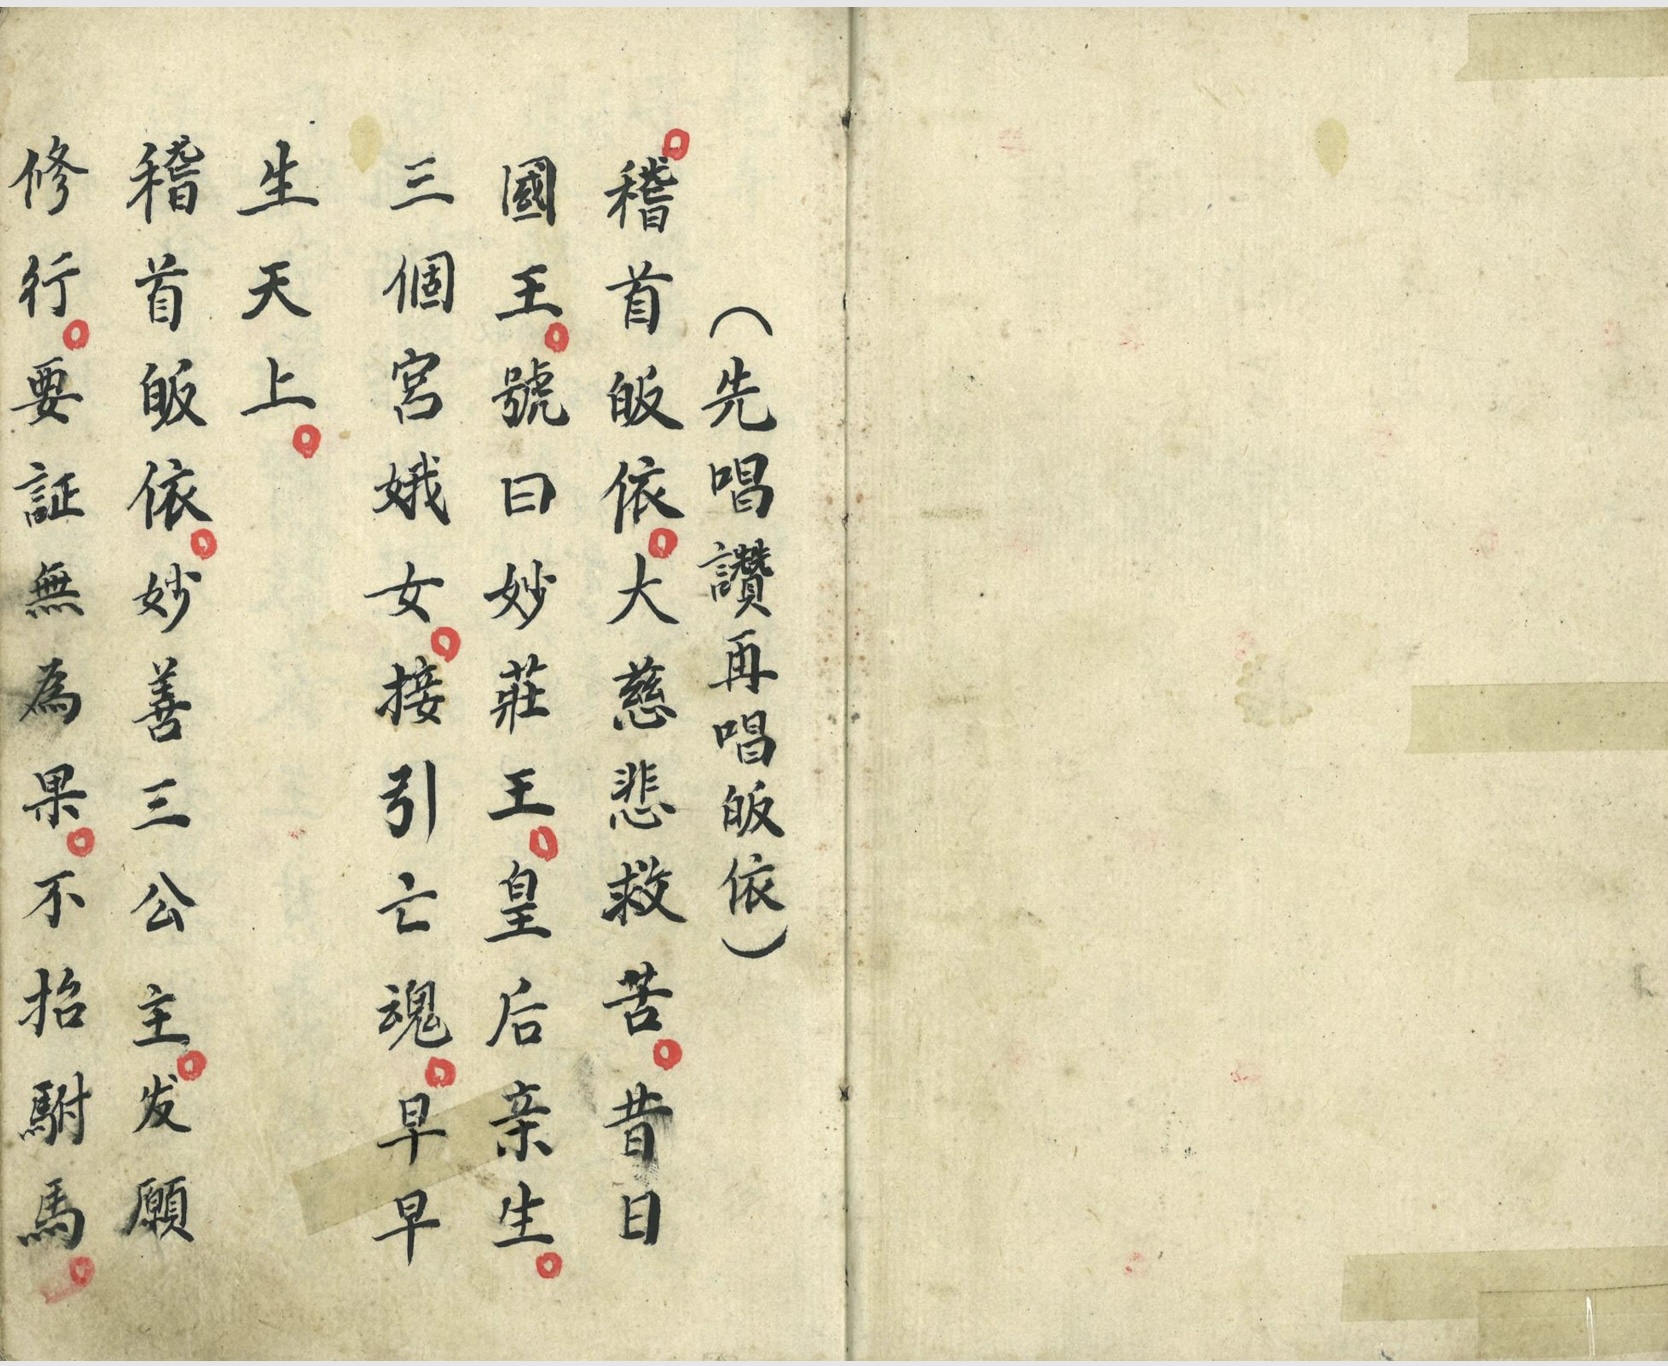 （先唱讚再唱皈依）
稽首皈依。大慈悲救苦。昔日
國王。號曰妙莊王。皇后亲生。
三個宮娥女。接引亡魂。早早
生天上。
稽首皈依。妙善三公主。发願
修行。要証無為果。不招駙馬。